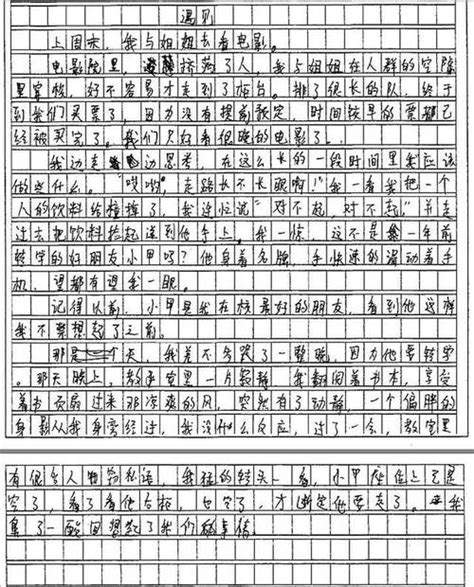 遇见
上周末,我与姐姐去看电影。
电影院里挤满了人,我与姐姐在人群的空隙
里穿梭,好不容易才来到了柜台。排了很长的队,终于
到我们买票了,因为没有提前预定,时间较早的票都已
经被买完了。我们只好看很晚的电影了。
我边走边思考,在这么长的一段时间里我应该
做些什么。“哎哟,走路长不长眼啊!”我一看我把一个
人的饮料给撞掉了,我连忙说“对不起,对不起。”并走
过去把饮料捡起送到他手上。我一惊,这不是一年前
转学的好朋友小甲吗?他身着名牌,手快速的滑动着手
机,望都有望我一眼。
记得以前,小甲是我在校最好的朋友,看到他这样
我不禁想起了之前。
那是一个天,我差不多哭了一整晚,因为他要转学
。那天晚上,教室里一片寂静,我翻阅着书本,享受
着书页扇过来那凉爽的风,突然有了动静,一个偏胖的
身影从我身旁经过,我没什么反应,过了一会,教室里
有很多人窃窃私语,我猛的转头一看,小甲座位上已是
空了,看了看他右枪,也空了,才断定他要走了。我
鼻了一酸